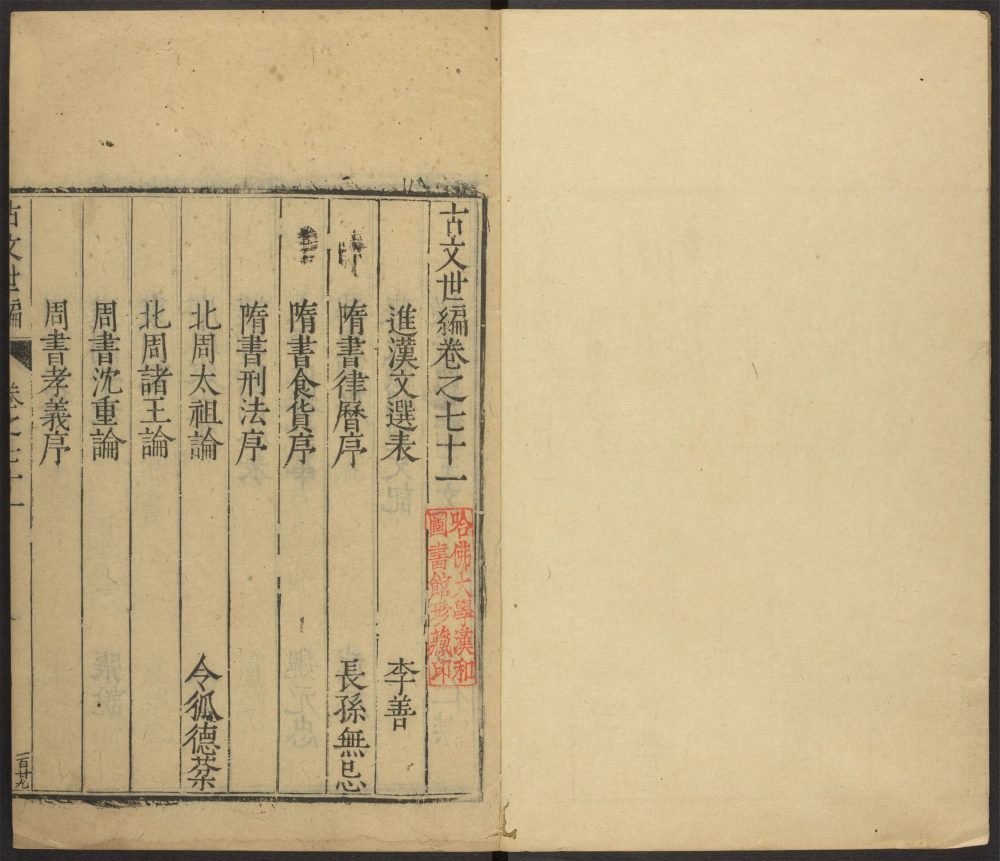 古文世編卷之七十一
哈佛大學漢和
圖書館珍藏印
進漢文選表 李善
隋書律曆序 長孫無忌
隋書食貨序
隋書刑法序
北周太祖論 令狐德棻
北周諸王論
周書沈重論
周書孝義序
古文世編 卷之七十一
一百廿九